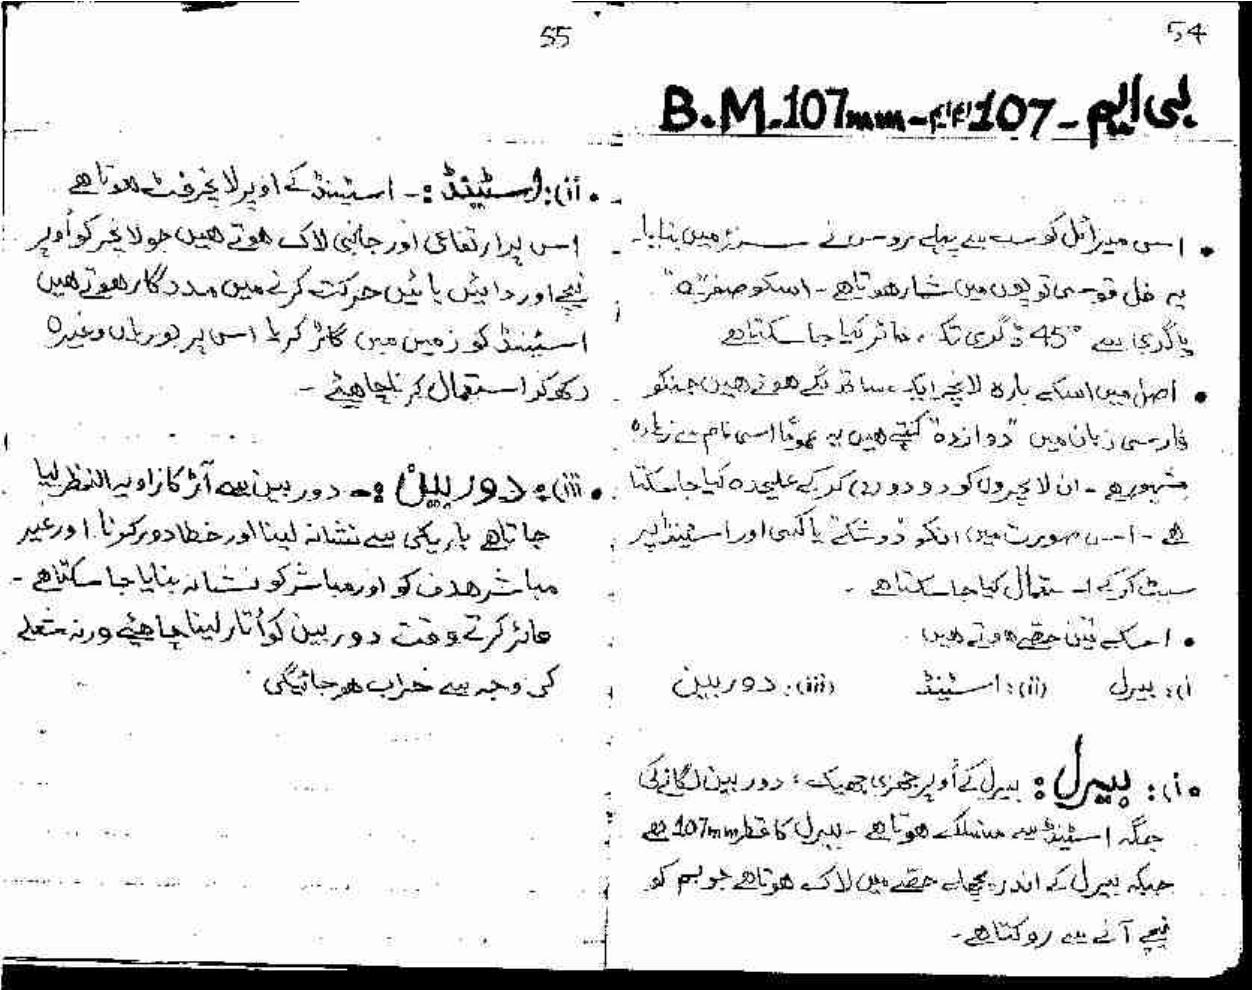 54
بی ایم - 107 م م - B.M.107mm
• اس میزائل کو سب سے پہلے روس نے میں بنایا۔
یہ خل قوسی توپوں میں شمار ہوتا ہے - اسکو صفر "0°"
ڈگری سے 45° ڈگری تک فائر کیا جا سکتا ہے
• اصل میں اسکے بارہ لانچر ایک ساتھ لگے ہوتے ہیں جنکو
فارسی زبان میں "دوازدہ" کہتے ہیں یہ عموماً اسی نام سے زیادہ
مشہور ہے - ان لانچروں کو دو دو کر کے علیحدہ کیا جا سکتا
ہے - اس صورت میں انکو یا کسی اور اسٹینڈ پر
سیٹ کر کے استعمال کیا جا سکتا ہے -
• اسکے تین حصے ہوتے ہیں۔
(i): بیرل (ii): اسٹینڈ (iii): دوربین
• (i): بیرل: بیرل کے اوپر دوربین لگانے کی
جگہ اسٹینڈ سے منسلک ہوتا ہے - بیرل کا قطر 107mm ہے
جبکہ بیرل کے اندر پچھلے حصے میں لاک ہوتا ہے جو بم کو
نیچے آنے سے روکتا ہے -
55
• (ii): اسٹینڈ: - اسٹینڈ کے اوپر لانچر فٹ ہوتا ہے
اس پر ارتفاعی اور جانبی لاک ہوتے ہیں جو لانچر کو اُوپر
نیچے اور دائیں بائیں حرکت کرنے میں مددگار ہوتے ہیں
اسٹینڈ کو زمین میں گاڑ کر یا اس پر بوریاں وغیرہ
رکھ کر استعمال کرنا چاہئے -
• (iii): دوربین: - دوربین سے آڑ کا زاویہ النظر لیا
جاتا ہے باریکی سے نشانہ لینا اور خطا دور کرنا اور غیر
مباشر ہدف کو اور مباشر کو نشانہ بنایا جا سکتا ہے -
فائر کرتے وقت دوربین کو اُتار لینا چاہئے ورنہ شعلے
کی وجہ سے خراب ہو جائیگی